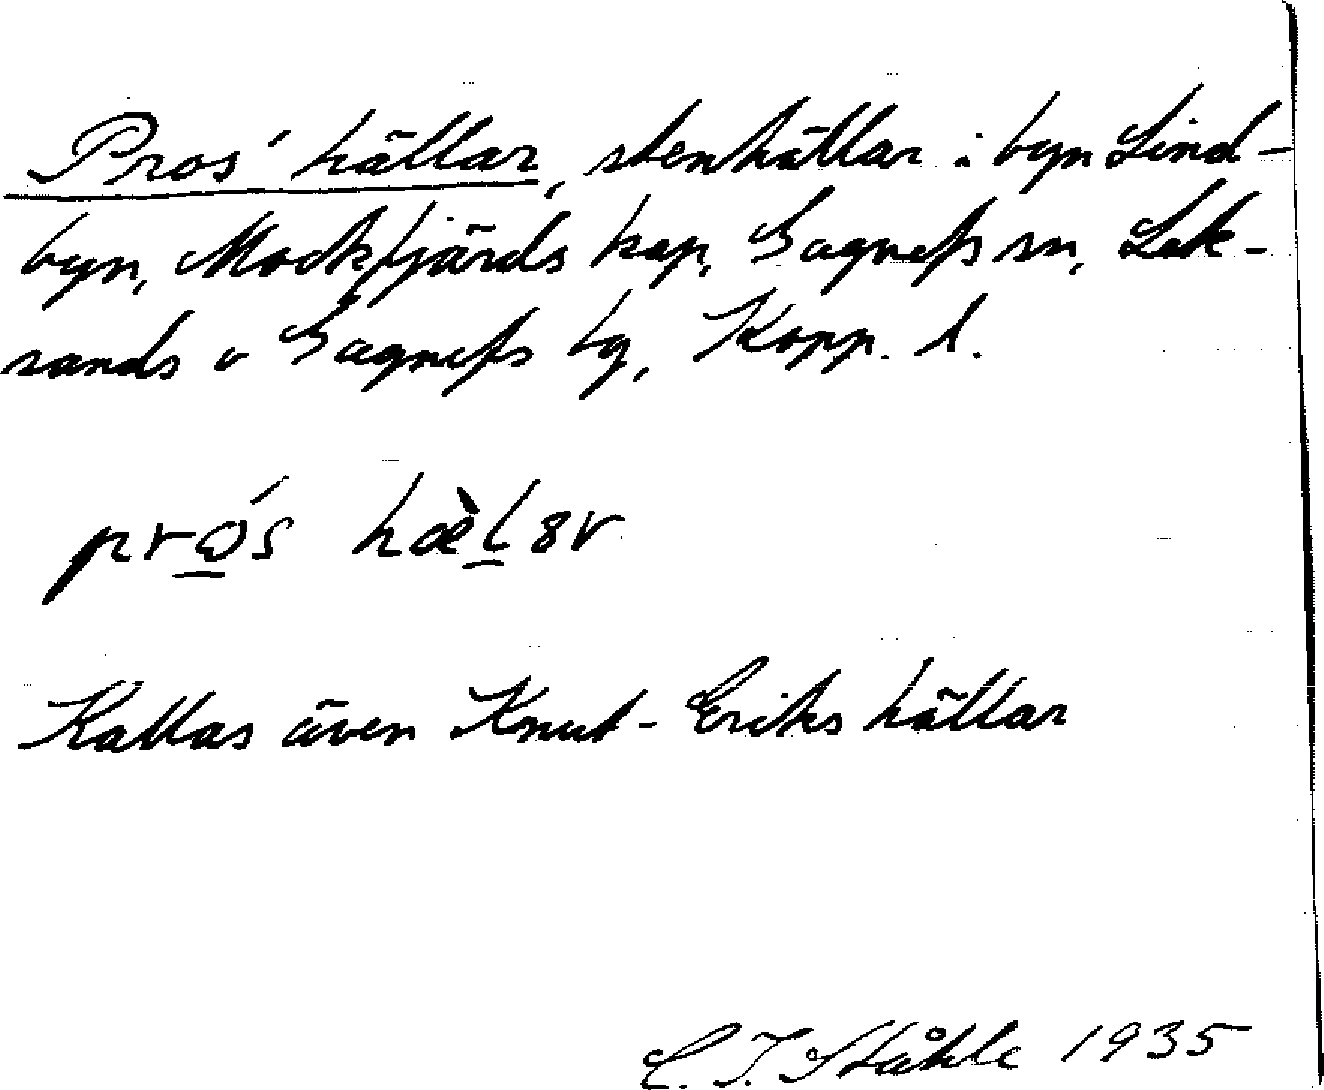 Pros' hällar, stenhällar i byn Lind-
byn, Mockfjärds kap, Gagnefs sn, Lek-
sands o Gagnefs tg, Kopp. l.
prós hæ̀lar
Kallas även Knut-Eriks hällar
C. I. Ståhle 1935